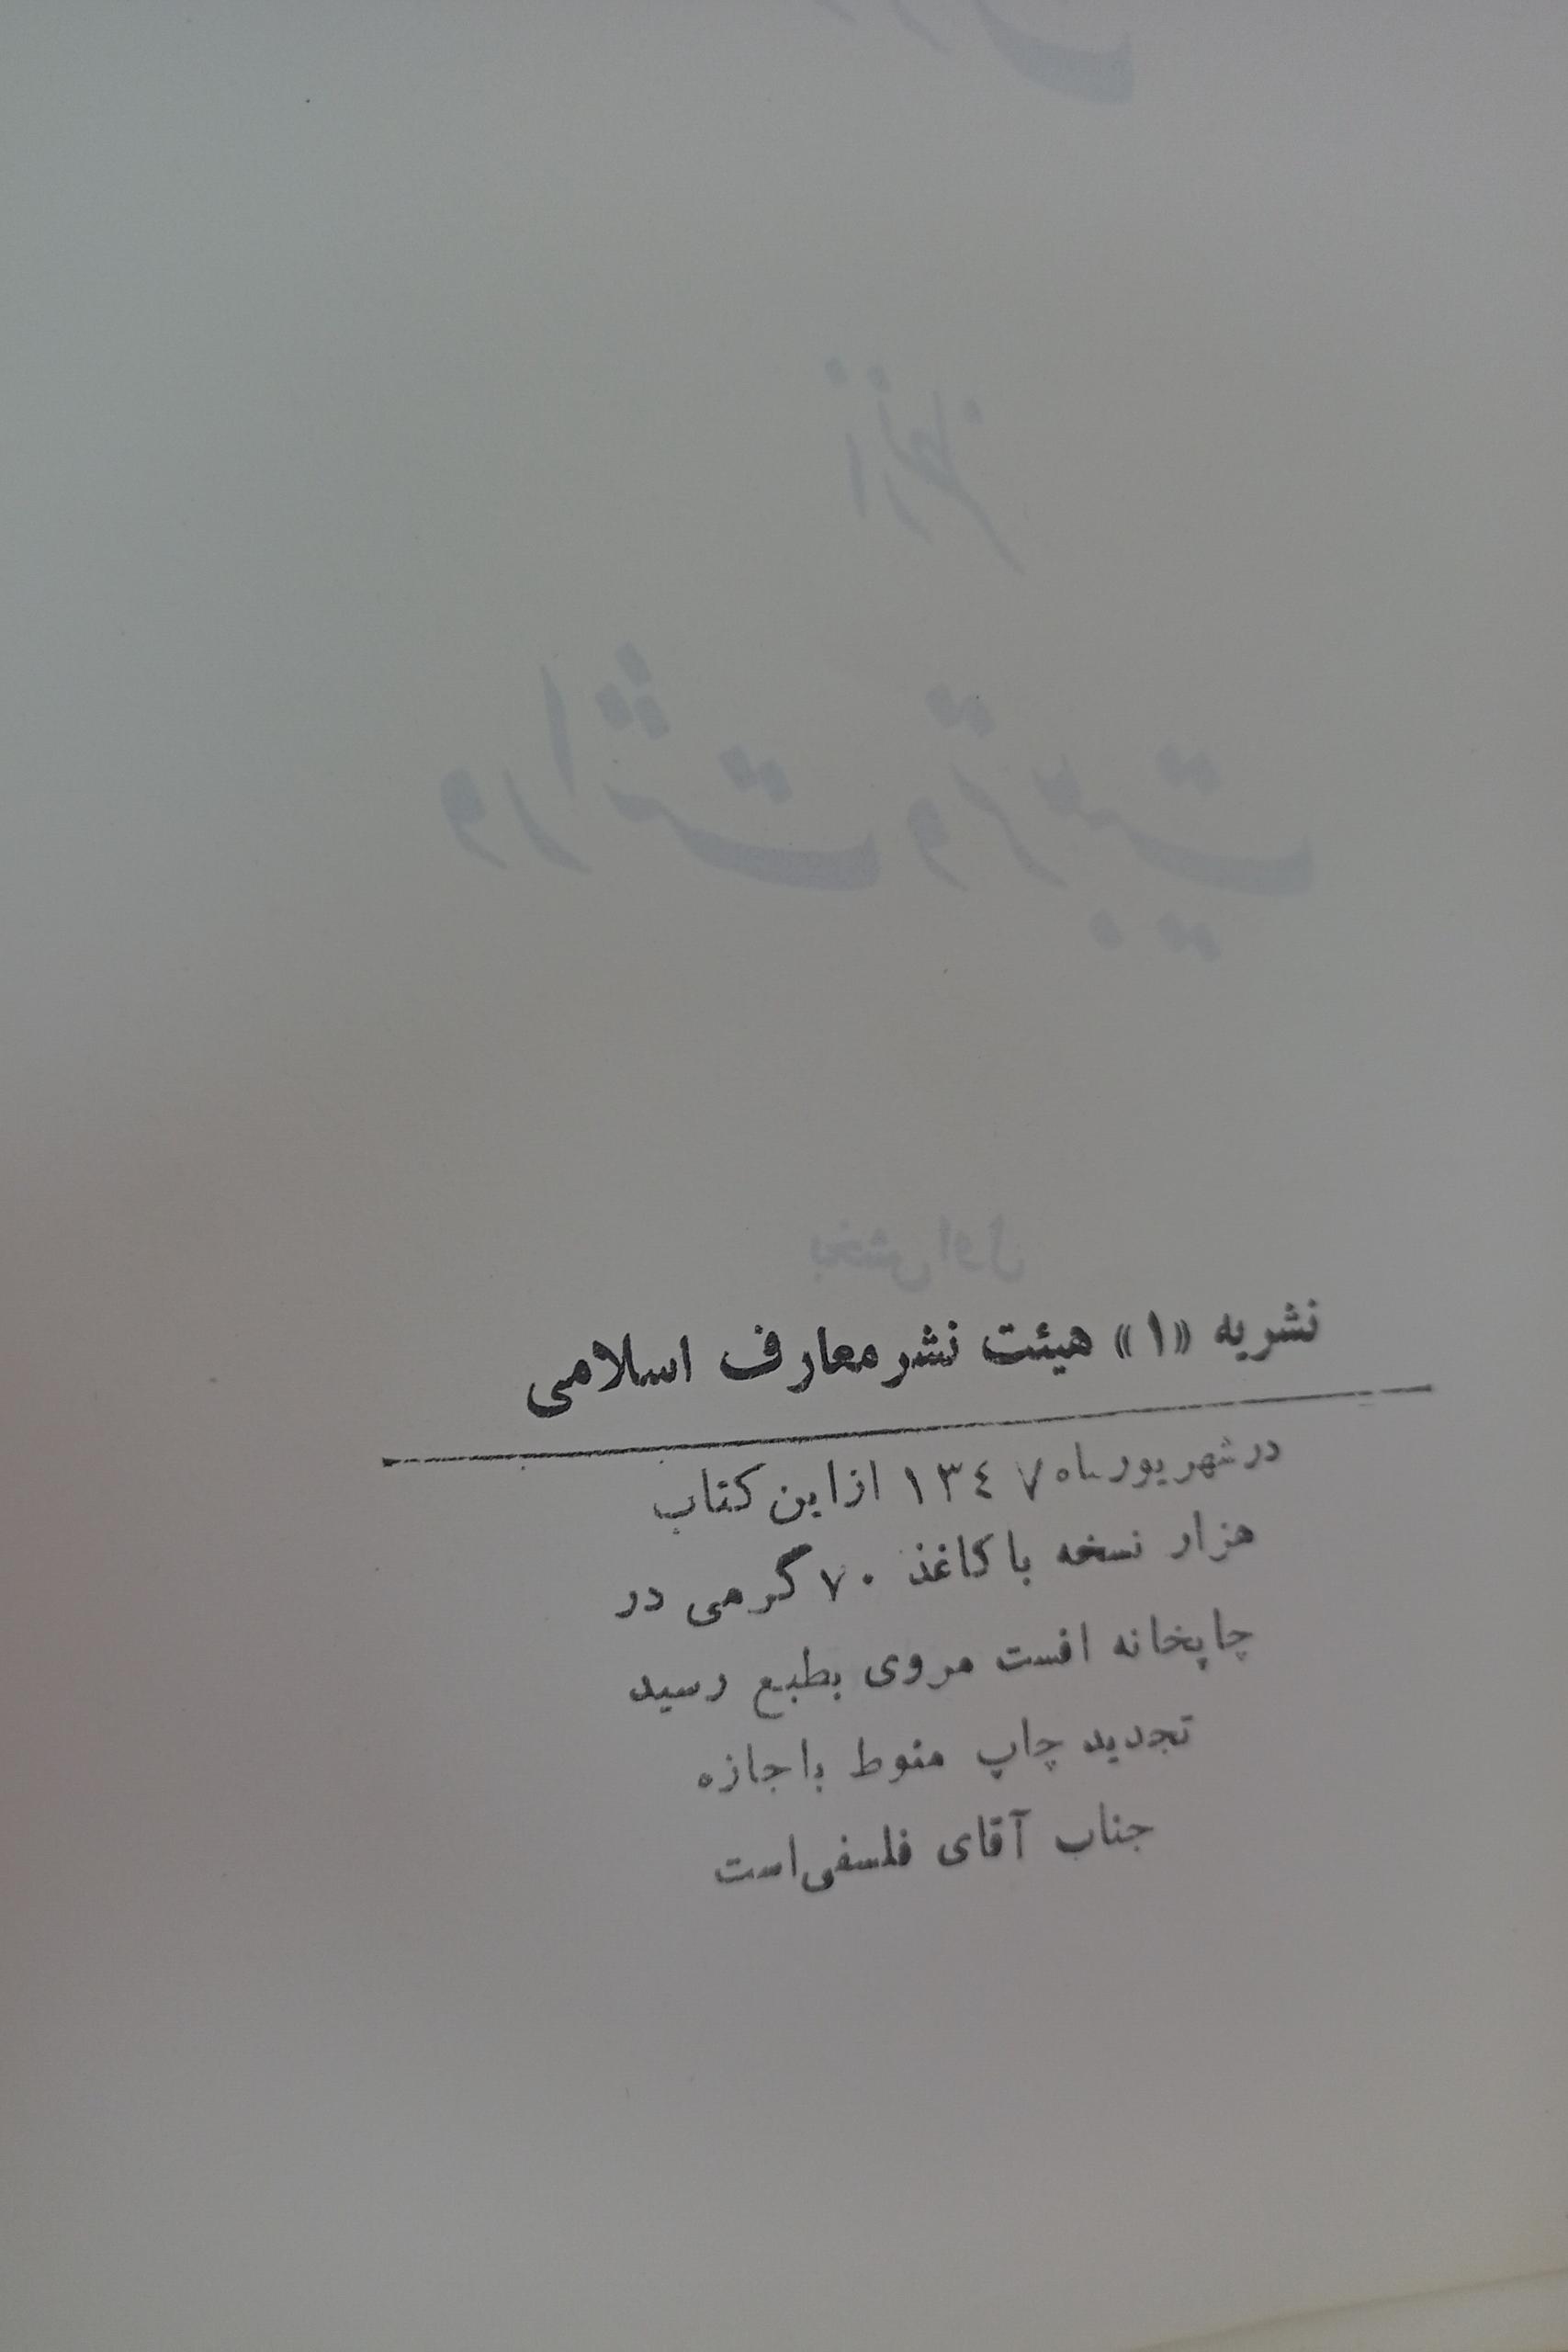 از نظر
وراثت و تربیت
بخش اول
نشریه «۱» هیئت نشر معارف اسلامی
در شهریور ماه ۱۳٤۷ از این کتاب
هزار نسخه با کاغذ ۷۰ گرمی در
چاپخانه افست مروی بطبع رسید
تجدید چاپ منوط باجازه
جناب آقای فلسفی است